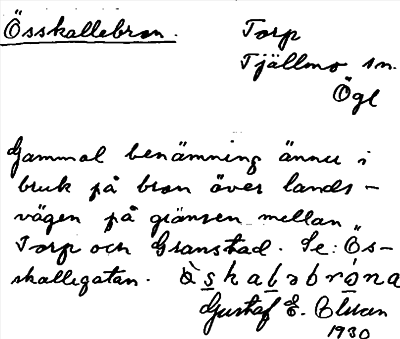 Össkallebron. Torp
Tjällmo sn.
Ögl
Gammal benämning ännu i
bruk på bron över lands-
vägen på gränsen mellan
Torp och Granstad. Se: Ös-
skallegatan.
Gustaf E. Olsson
1930